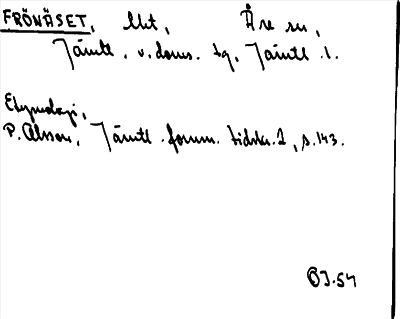 FRÖNÄSET, llit, Åre sn,
Jämtl. v. doms. tg, Jämtl. l.
Etymologi,
P. Olsson, Jämtl. fornm. tidskr. 1, s. 143.
OJ. 54